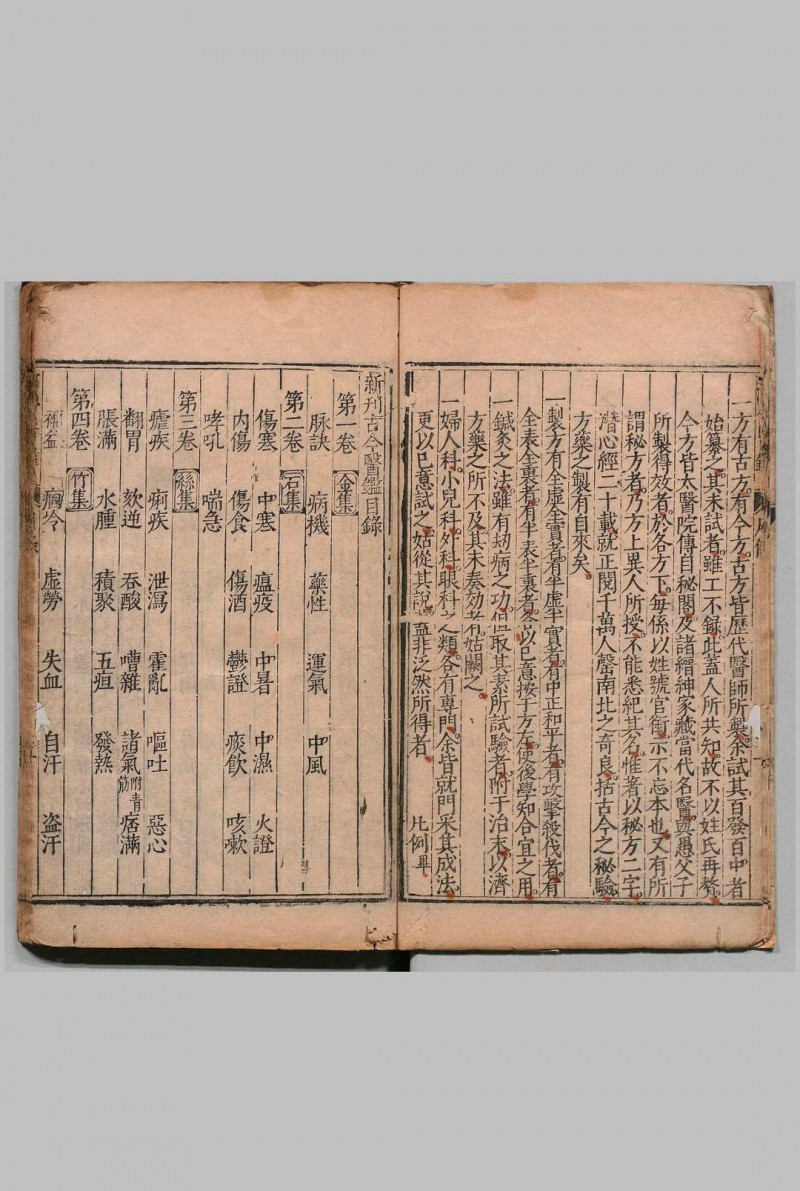 一方有古方有今方古方皆歷代醫師所製余試其百發百中者
始纂之其未試者雖工不録此蓋人所共知故不以姓氏再贅
今方皆太醫院傳自秘閣及諸縉紳家藏當代名醫與愚父子
所製得效者於各方下毎係以姓號官銜示不忘本也又有所
謂秘方者乃方上異人所授不能悉紀其名惟著以秘方二字
潛心經二十載就正閱千萬人罄南北之奇良括古今之秘驗
方藥之製有自來矣
一製方有全虛全實者有半虛半實者有中正和平者有攻擊殺伐者有
全表全裏者有半表半裏者各以己意按于方左使後學知合宜之用
一鍼灸之法雖有刼病之功但取其素所試驗者附于治末以濟
方藥之所不及其未奏効者姑闕之
一婦人科小兒科外科眼科之類各有專門余皆就門采其成法
更以己意試之姑從其說盖非泛然所得者 凡例畢
新刊古今醫鑑目錄
第一卷 金集
脉訣 病機 藥性 運氣 中風
第二卷 石集
傷寒 中寒 瘟疫 中暑 中濕 火證
内傷 傷食 傷酒 鬱證 痰飲 咳嗽
哮吼 喘急
第三卷 絲集
瘧疾 痢疾 泄瀉 霍亂 嘔吐 惡心
翻胃 欬逆 吞酸 嘈雜 諸氣附青筋 痞滿
脹滿 水腫 積聚 五疸 發熱
第四卷 竹集
補益 痼冷 虛勞 失血 自汗 盗汗